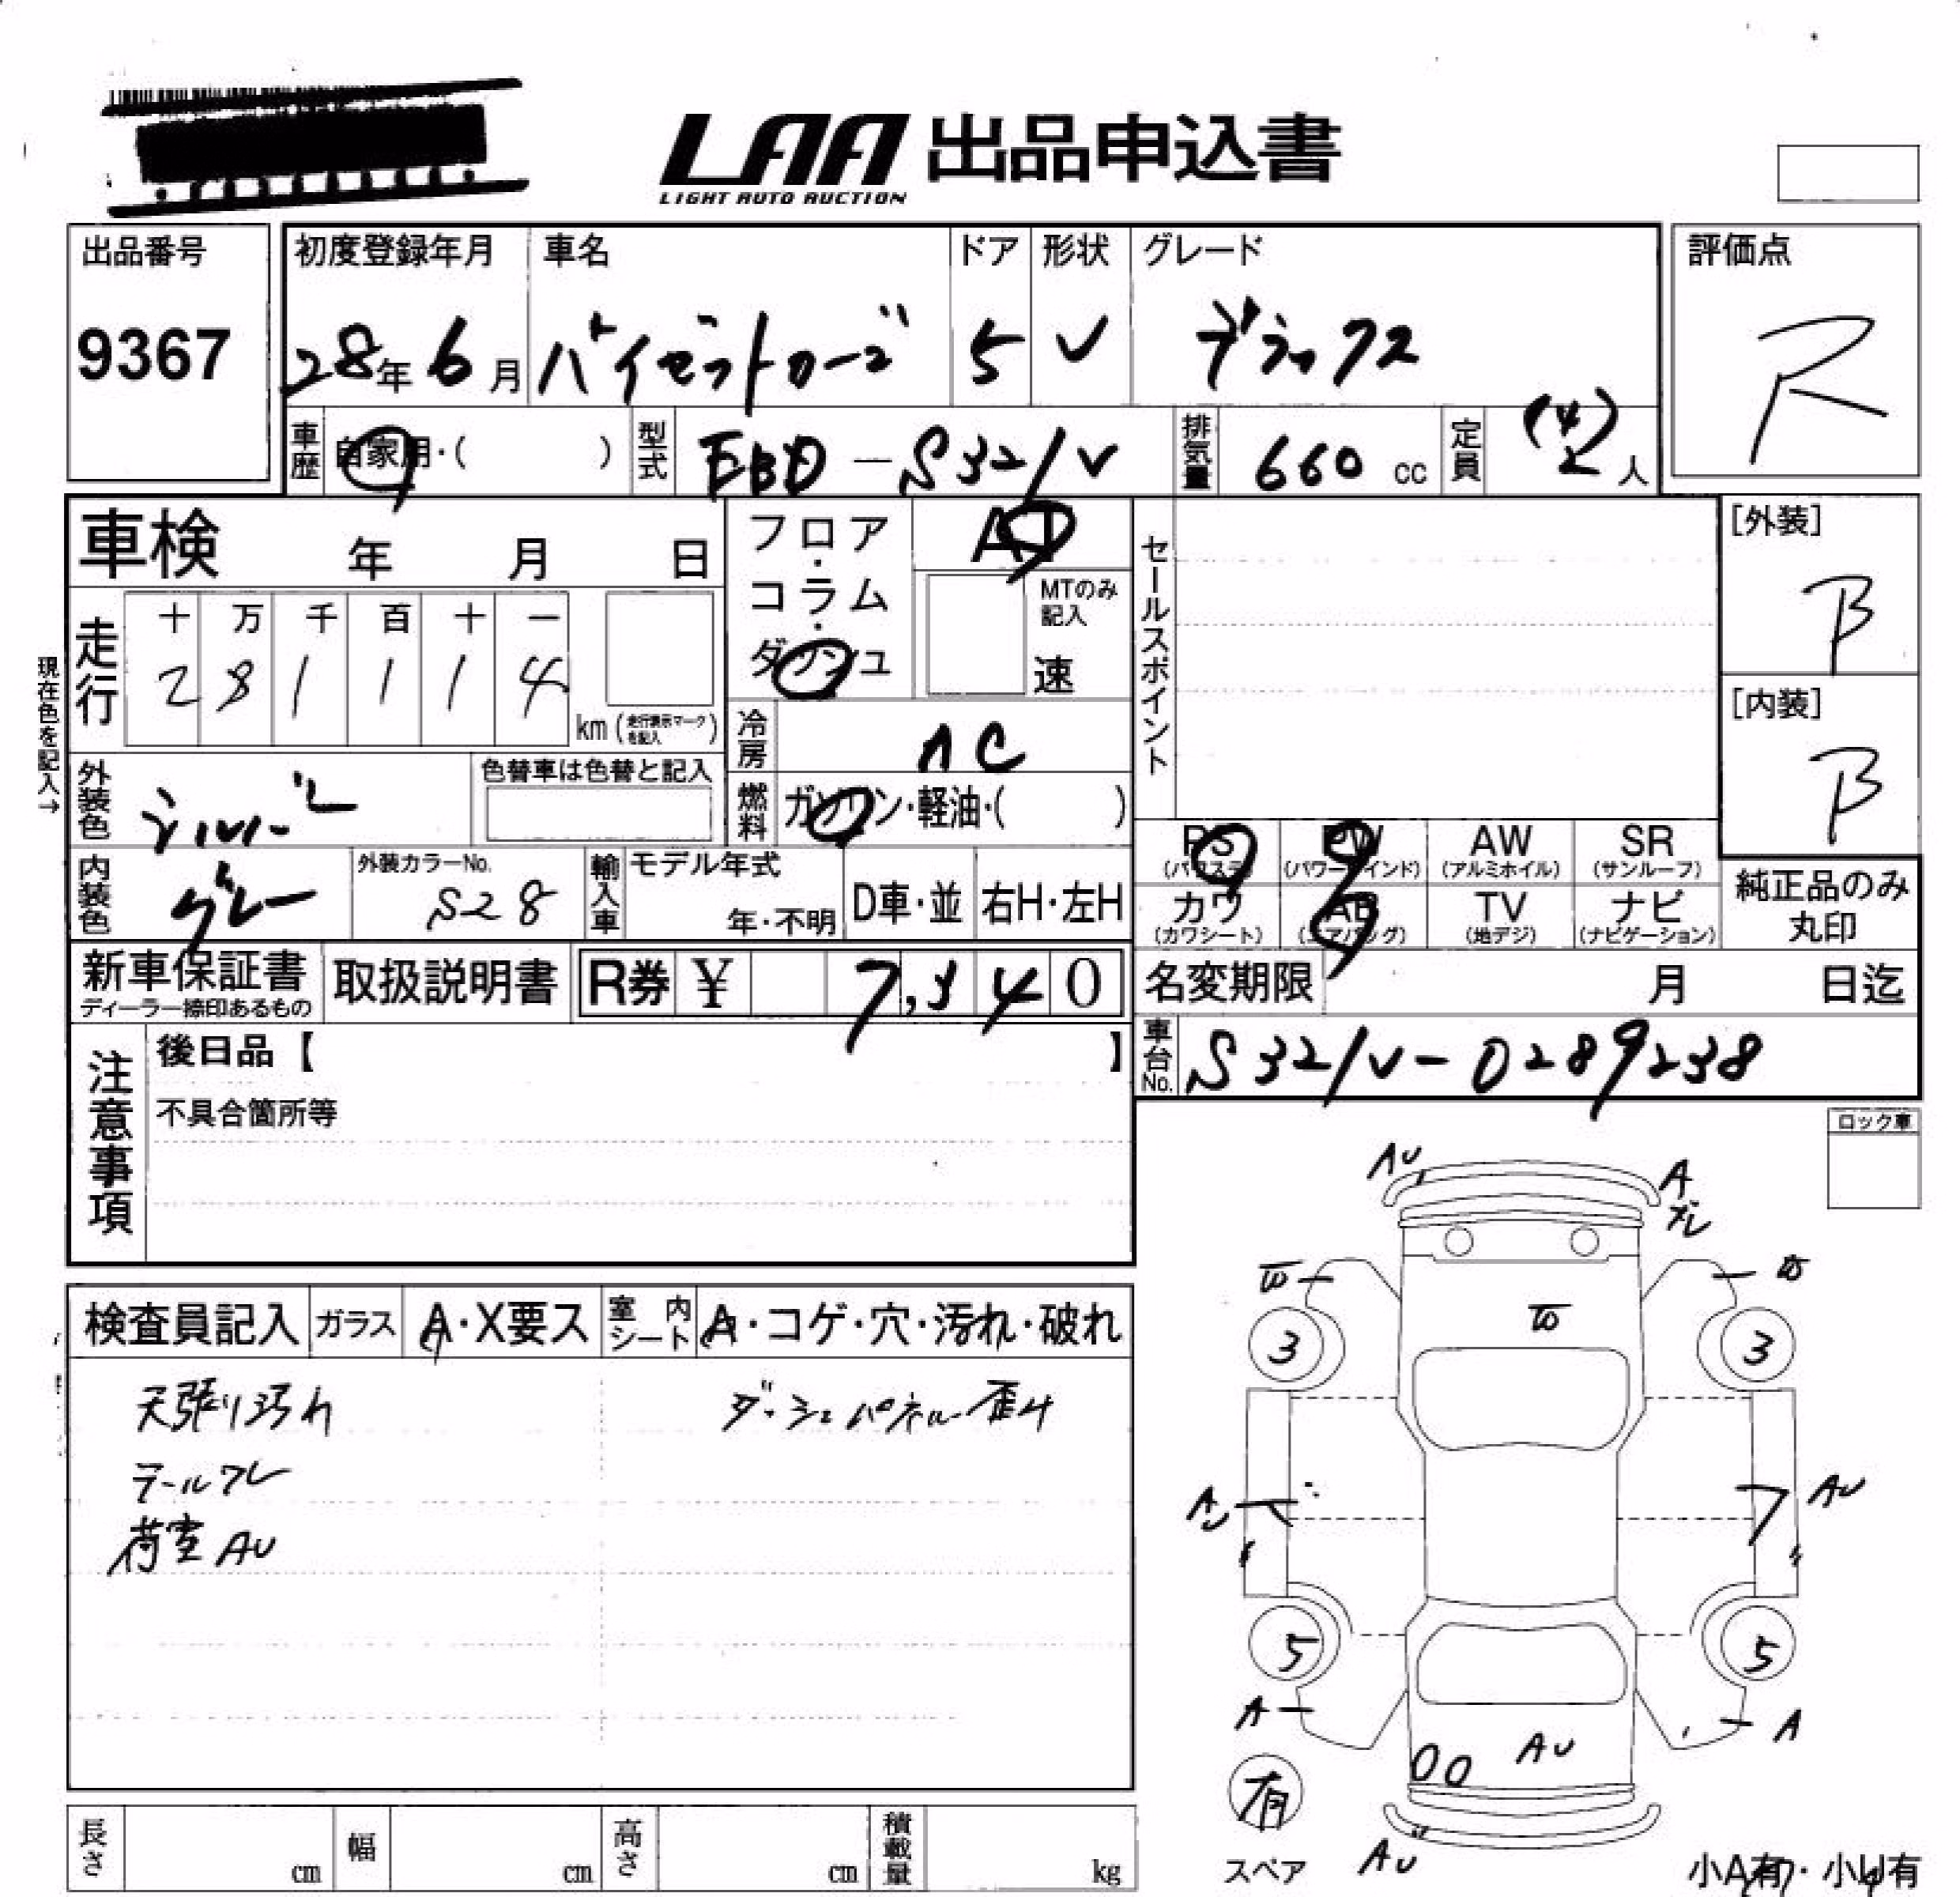 LAA 出品申込書
LIGHT AUTO AUCTION
出品番号
9367
初度登録年月
28年 6月
車名
ハイゼットカーゴ
ドア
5
形状
V
グレード
デラックス
評価点
R
車歴
自家用・( )
型式
EBD-S321V
排気量
660 cc
定員
2(4)人
車検 年 月 日
フロア・コラム・ダッシュ
AT
MTのみ記入
速
セールスポイント
[外装]
B
[内装]
B
現在色を記入→
走行
十 万 千 百 十 一
2 8 1 1 1 4
km (走行表示マークを記入)
冷房
AC
外装色
シルバー
色替車は色替と記入
燃料
ガソリン・軽油・( )
内装色
グレー
外装カラーNo.
S28
輸入車
モデル年式
年・不明
D車・並
右H・左H
PS (パワステ)
PW (パワーウインド)
AW (アルミホイル)
SR (サンルーフ)
カワ (カワシート)
AB (エアバッグ)
TV (地デジ)
ナビ (ナビゲーション)
純正品のみ
丸印
新車保証書
ディーラー捺印あるもの
取扱説明書
R券 ¥ 7,340
名変期限 月 日迄
車台No.
S321V-0289238
注意事項
後日品【 】
不具合箇所等
ロック車
検査員記入
ガラス
A・X要ス
室内シート
A・コゲ・穴・汚れ・破れ
天張り汚れ
ダッシュパネル歪み
テールワレ
荷室AU
AU
A
ズレ
W
W
W
3
3
AU
AU
5
5
A
A
AU
有
スペア
AU
小A有・小U有
長さ cm
幅 cm
高さ cm
積載量 kg